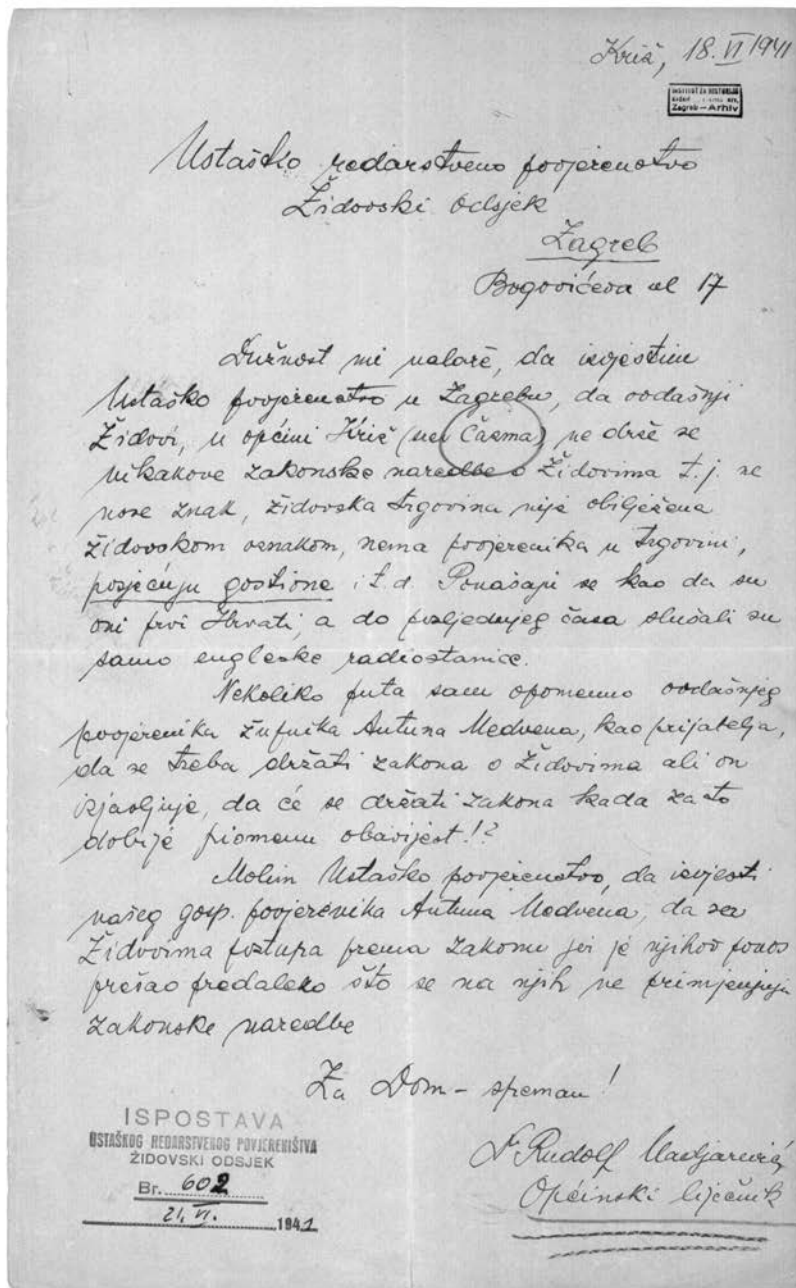 Križ, 18. VI 1941
Zagreb – Arhiv
Ustaško redarstveno povjerenstvo
Židovski odsjek
Zagreb
Bogovićeva ul 17
Dužnost mi nalaže, da izvjestim
Ustaško povjerenstvo u Zagrebu, da ovdašnji
Židovi, u općini Križ (na Čazma) ne drže se
nikakove zakonske naredbe o Židovima t.j. ne
nose znak, židovska trgovina nije obilježena
židovskom oznakom, nema povjerenika u trgovini,
posjećuju gostione i t.d. Ponašaju se kao da su
oni prvi Hrvati, a do posljednjeg časa slušali su
samo engleske radiostanice.
Nekoliko puta sam opomenuo ovdašnjeg
povjerenika župnika Antuna Medvena, kao prijatelja,
da se treba držati zakona o Židovima ali on
izjavljuje, da će se držati zakona kada za to
dobije pismenu obavijest!?
Molim Ustaško povjerenstvo, da izvjesti
našeg gosp. povjerenika Antuna Medvena, da sa
Židovima postupa prema zakonu jer je njihov ponos
prešao predaleko što se na njih ne primjenjuju
zakonske naredbe
Za Dom – spreman!
Dr Rudolf
Općinski liječnik
ISPOSTAVA
USTAŠKOG REDARSTVENOG POVJERENIŠTVA
ŽIDOVSKI ODSJEK
Br. 602
21. VI. 1941